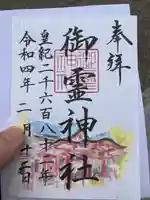 奉拝
御霊神社
皇紀二千六百八十二年
令和四年二月十二日